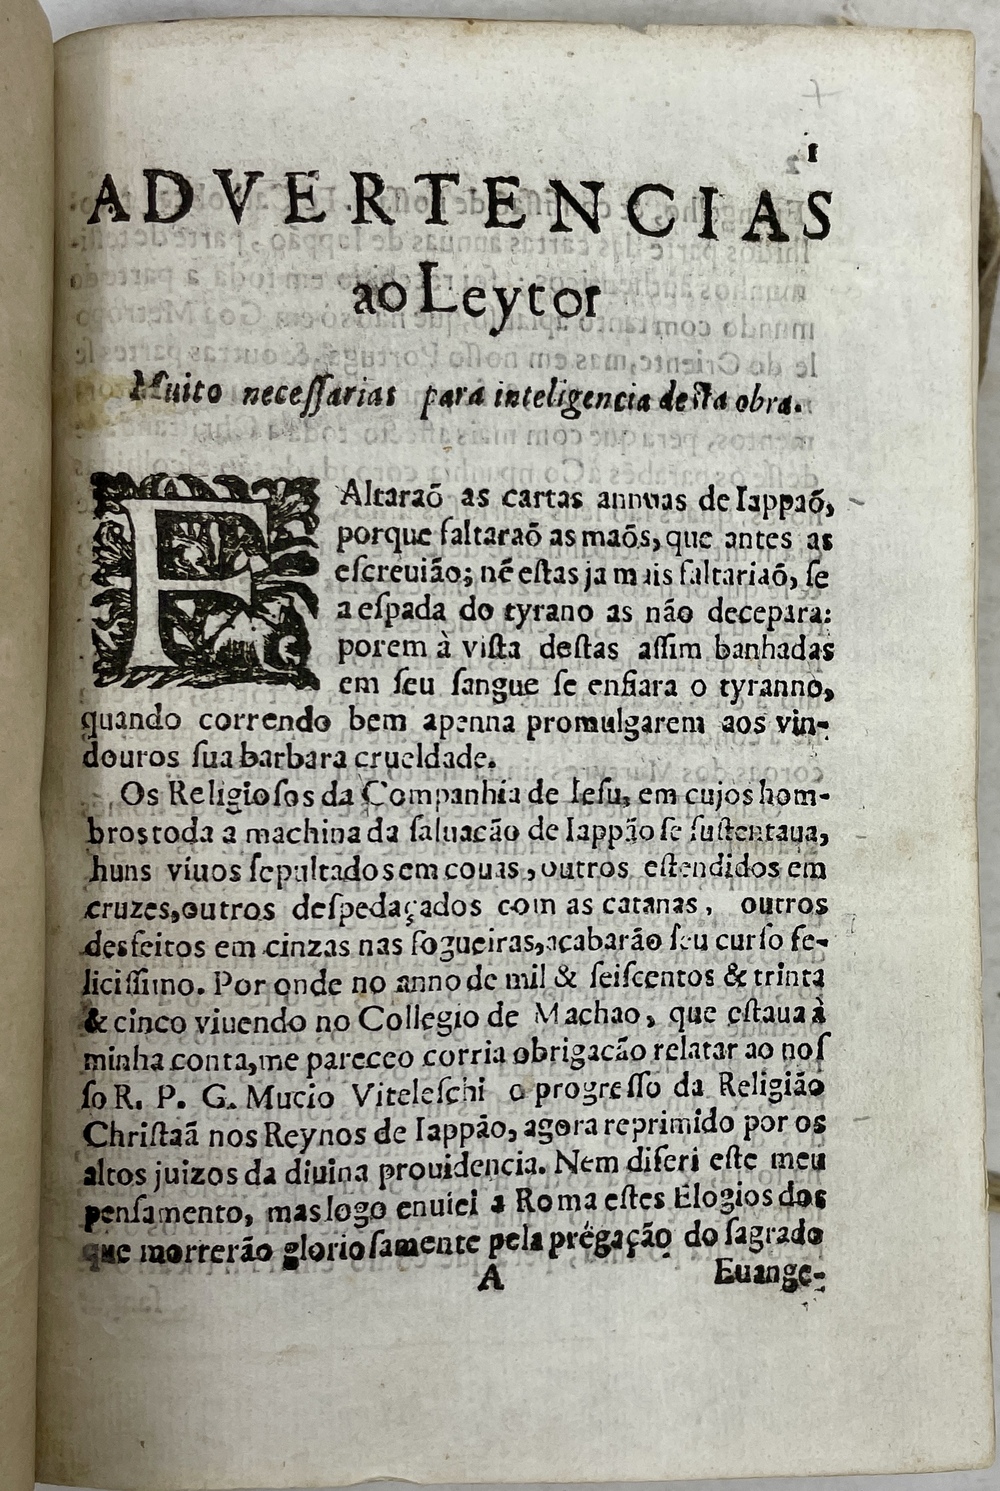 1
ADVERTENCIAS
ao Leytor
Muito neceſſarias para inteligencia deſta obra.
FAltaraõ as cartas annuas de Iappaõ,
porque faltaraõ as maõs, que antes as
eſcreuião; nẽ eſtas ja mais faltariaõ, ſe
a eſpada do tyrano as não decepara:
porem à viſta deſtas aſſim banhadas
em ſeu ſangue ſe enfiara o tyranno,
quando correndo bem apenna promulgarem aos vin-
douros ſua barbara crueldade.
Os Religioſos da Companhia de Ieſu, em cujos hom-
bros toda a machina da ſaluacão de Iappão ſe ſuſtentaua,
huns viuos ſepultados em couas, outros eſtendidos em
cruzes, outros deſpedaçados com as catanas, outros
desfeitos em cinzas nas fogueiras, acabarão ſeu curſo fe-
liciſſimo. Por onde no anno de mil & ſeiſcentos & trinta
& cinco viuendo no Collegio de Machao, que eſtaua à
minha conta, me pareceo corria obrigacão relatar ao noſ
ſo R. P. G. Mucio Viteleſchi o progreſſo da Religião
Chriſtaã nos Reynos de Iappão, agora reprimido por os
altos juizos da diuina prouidencia. Nem diferi eſte meu
penſamento, mas logo enuiei a Roma eſtes Elogios dos
que morrerão glorioſamente pela prègação do ſagrado
A Euange-